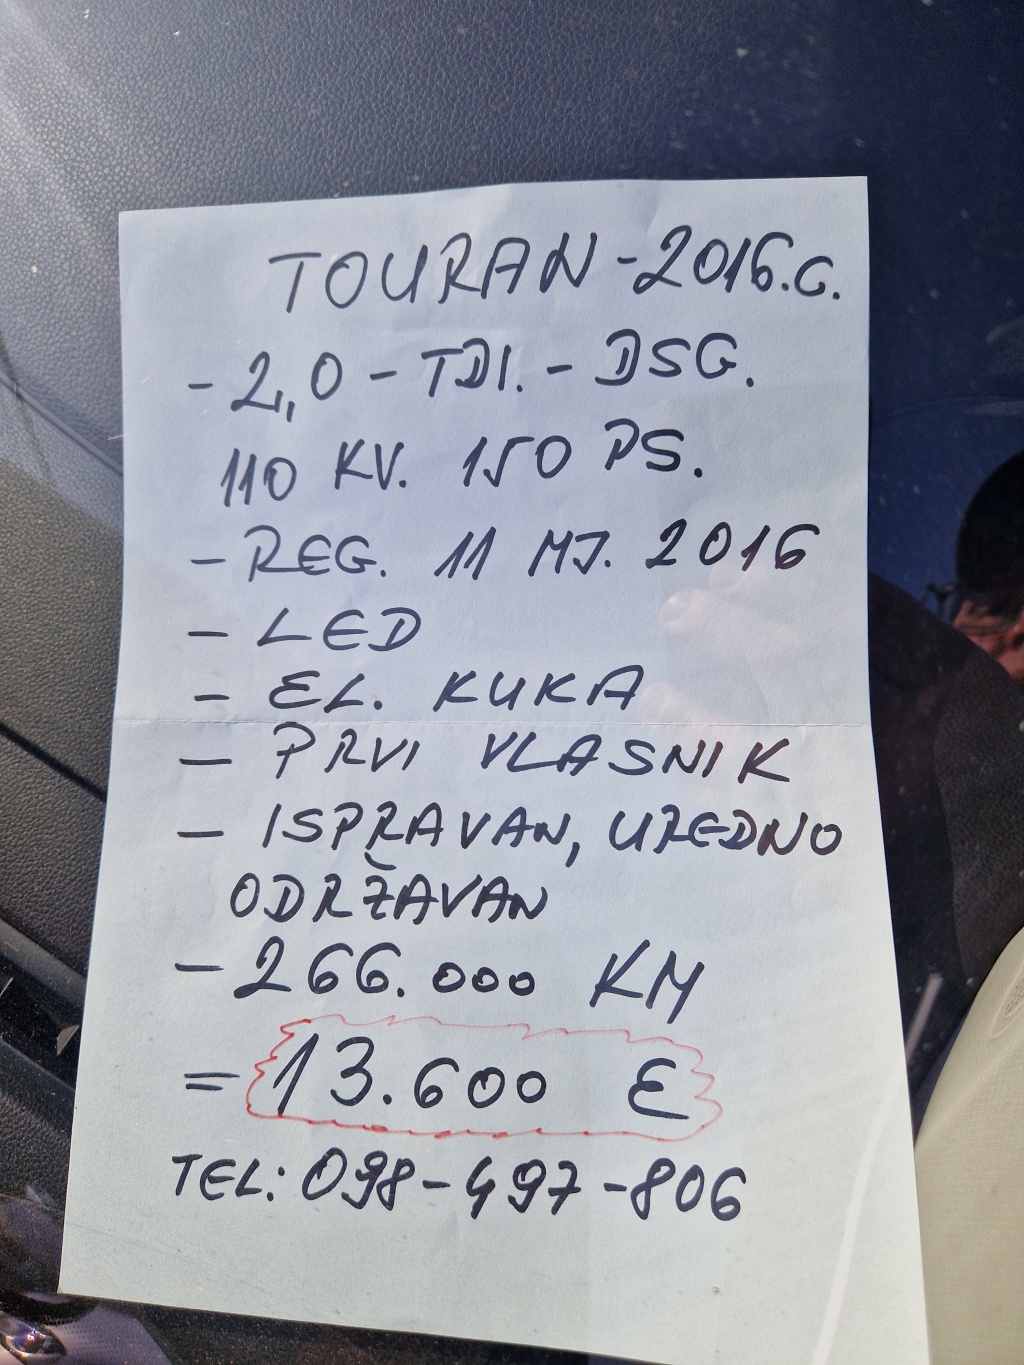 TOURAN - 2016.G.
- 2,0 - TDI. - DSG.
110 KV. 150 PS.
- REG. 11 MJ. 2016
- LED
- EL. KUKA
- PRVI VLASNIK
- ISPRAVAN, UREDNO
ODRŽAVAN
- 266.000 KM
= 13.600 €
TEL: 098-497-806